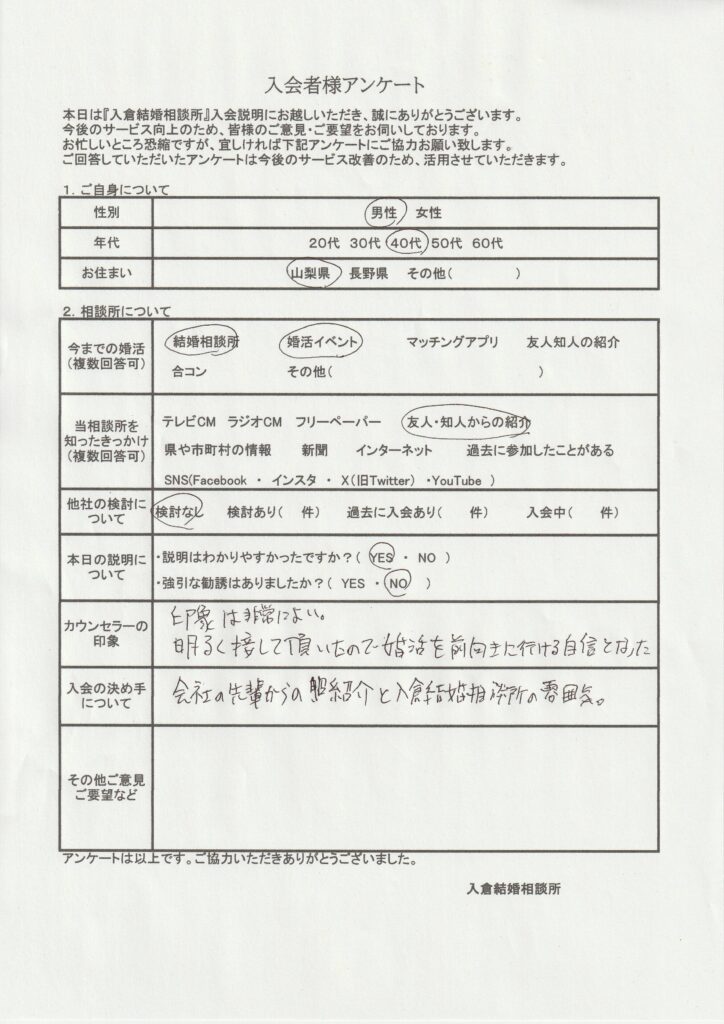 入会者様アンケート
本日は『入倉結婚相談所』入会説明にお越しいただき、誠にありがとうございます。
今後のサービス向上のため、皆様のご意見・ご要望をお伺いしております。
お忙しいところ恐縮ですが、宜しければ下記アンケートにご協力お願い致します。
ご回答していただいたアンケートは今後のサービス改善のため、活用させていただきます。
1. ご自身について
性別 男性 女性
年代 20代 30代 40代 50代 60代
お住まい 山梨県 長野県 その他( )
2. 相談所について
今までの婚活
(複数回答可)
結婚相談所 婚活イベント マッチングアプリ 友人知人の紹介
合コン その他( )
当相談所を
知ったきっかけ
(複数回答可)
テレビCM ラジオCM フリーペーパー 友人・知人からの紹介
県や市町村の情報 新聞 インターネット 過去に参加したことがある
SNS(Facebook ・ インスタ ・ X(旧Twitter) ・YouTube )
他社の検討に
ついて
検討なし 検討あり( 件) 過去に入会あり( 件) 入会中( 件)
本日の説明に
ついて
・説明はわかりやすかったですか?( YES ・ NO )
・強引な勧誘はありましたか?( YES ・ NO )
カウンセラーの
印象
印象は非常によい。
明るく接して頂いたので婚活を前向きに行ける自信となった
入会の決め手
について
会社の先輩からの紹介と入倉結婚相談所の雰囲気。
その他ご意見
ご要望など
アンケートは以上です。ご協力いただきありがとうございました。
入倉結婚相談所